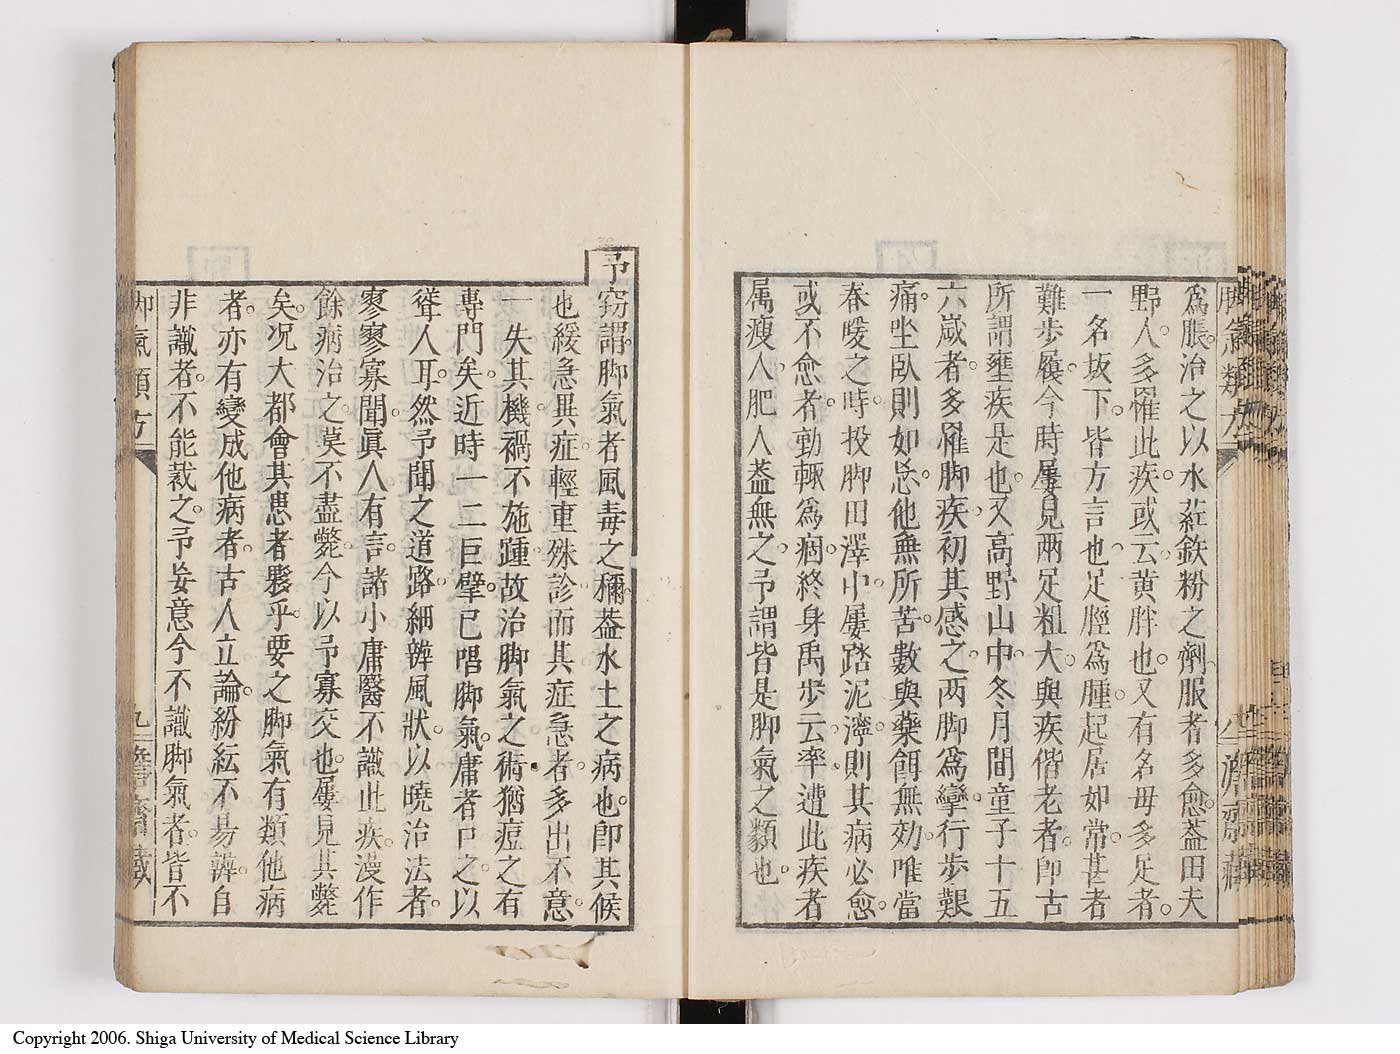 脚氣類方
爲脹治之以水莊鉄粉之劑服者多愈葢田夫
野人多罹此疾或云黄胖也又有名毋多足者
一名坂下皆方言也足脛爲腫起居如常甚者
難歩履今時屢見兩足粗大與疾偕老者卽古
所謂壅疾是也又高野山中冬月間童子十五
六歳者多罹脚疾初其感之两脚爲攣行歩艱
痛坐臥則如忘他無所苦數與藥餌無効唯當
春暖之時投脚田澤中屢踏泥濘則其病必愈
或不愈者動輒爲痼終身禹歩云率遭此疾者
属瘦人肥人葢無之予謂皆是脚氣之類也
予窃謂脚氣者風毒之㣲葢水土之病也卽其候
也緩急異症輕重殊診而其症急者多出不意
一失其機禍不施踵故治脚氣之術猶痘之有
專門矣近時一二巨擘已唱脚氣庸者口之以
聳人耳然予聞之道路細辨風狀以曉治法者
寥寥寡聞眞人有言諸小庸醫不識此疾漫作
餘病治之莫不盡斃今以予寡交也屢見其斃
矣况大都會其患者夥乎要之脚氣有類他病
者亦有變成他病者古人立論紛紜不易辨自
非識者不能裁之予妄意今不識脚氣者皆不
脚氣類方
九